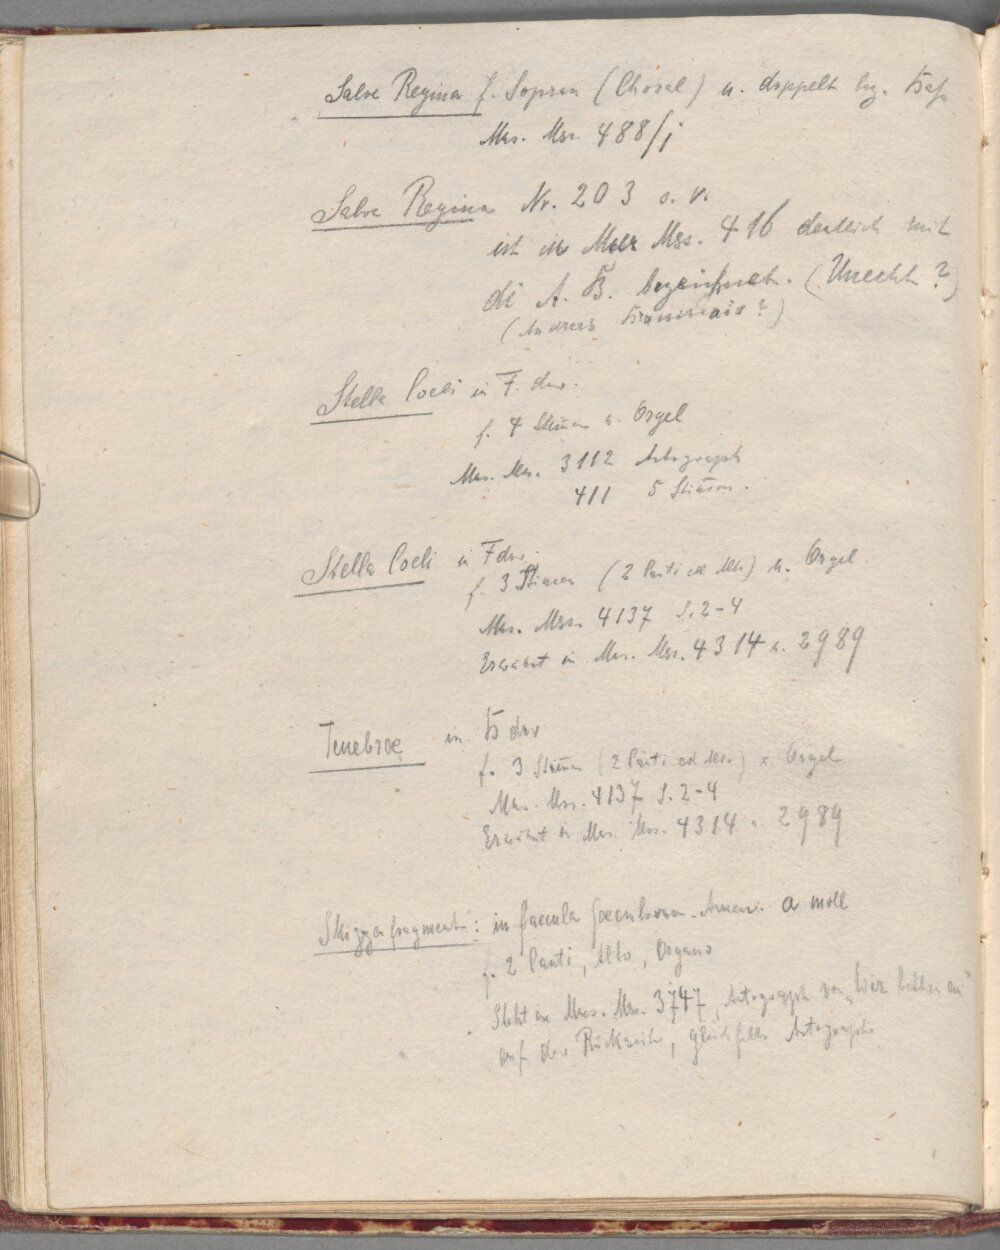 Salve Regina f. Sopran (Choral) u. doppelt bez. Baß
Mus. Mss. 488/j
Salve Regina Nr. 203 s. v.
ist in Mus Mss. 416 deutlich mit
di A. B. bezeichnet. (Unecht?)
(Andreas ?)
Stella Coeli in F dur.
f. 4 Stimen u. Orgel
Mus. Mss. 3112 Autograph
411 5 Stimen.
Stella Coeli in F dur.
f. 3 Stimen (2 Canti ed Alto) u. Orgel.
Mus. Mss. 4137 S. 2-4
Erwähnt in Mus. Mss. 4314 u. 2989
Tenebrae in B dur
f. 3 Stimen (2 Canti ed Alto) u. Orgel
Mus. Mss. 4137 S. 2-4
Erwähnt in Mus. Mss. 4314 u. 2989
Skizzenfragment: in saecula saeculorum. Amen. a moll
f. 2 Canti, Alto, Organo
Steht in Mus. Mss. 3747, Autograph von "Wir beten an"
auf der Rückseite, gleichfalls Autograph.